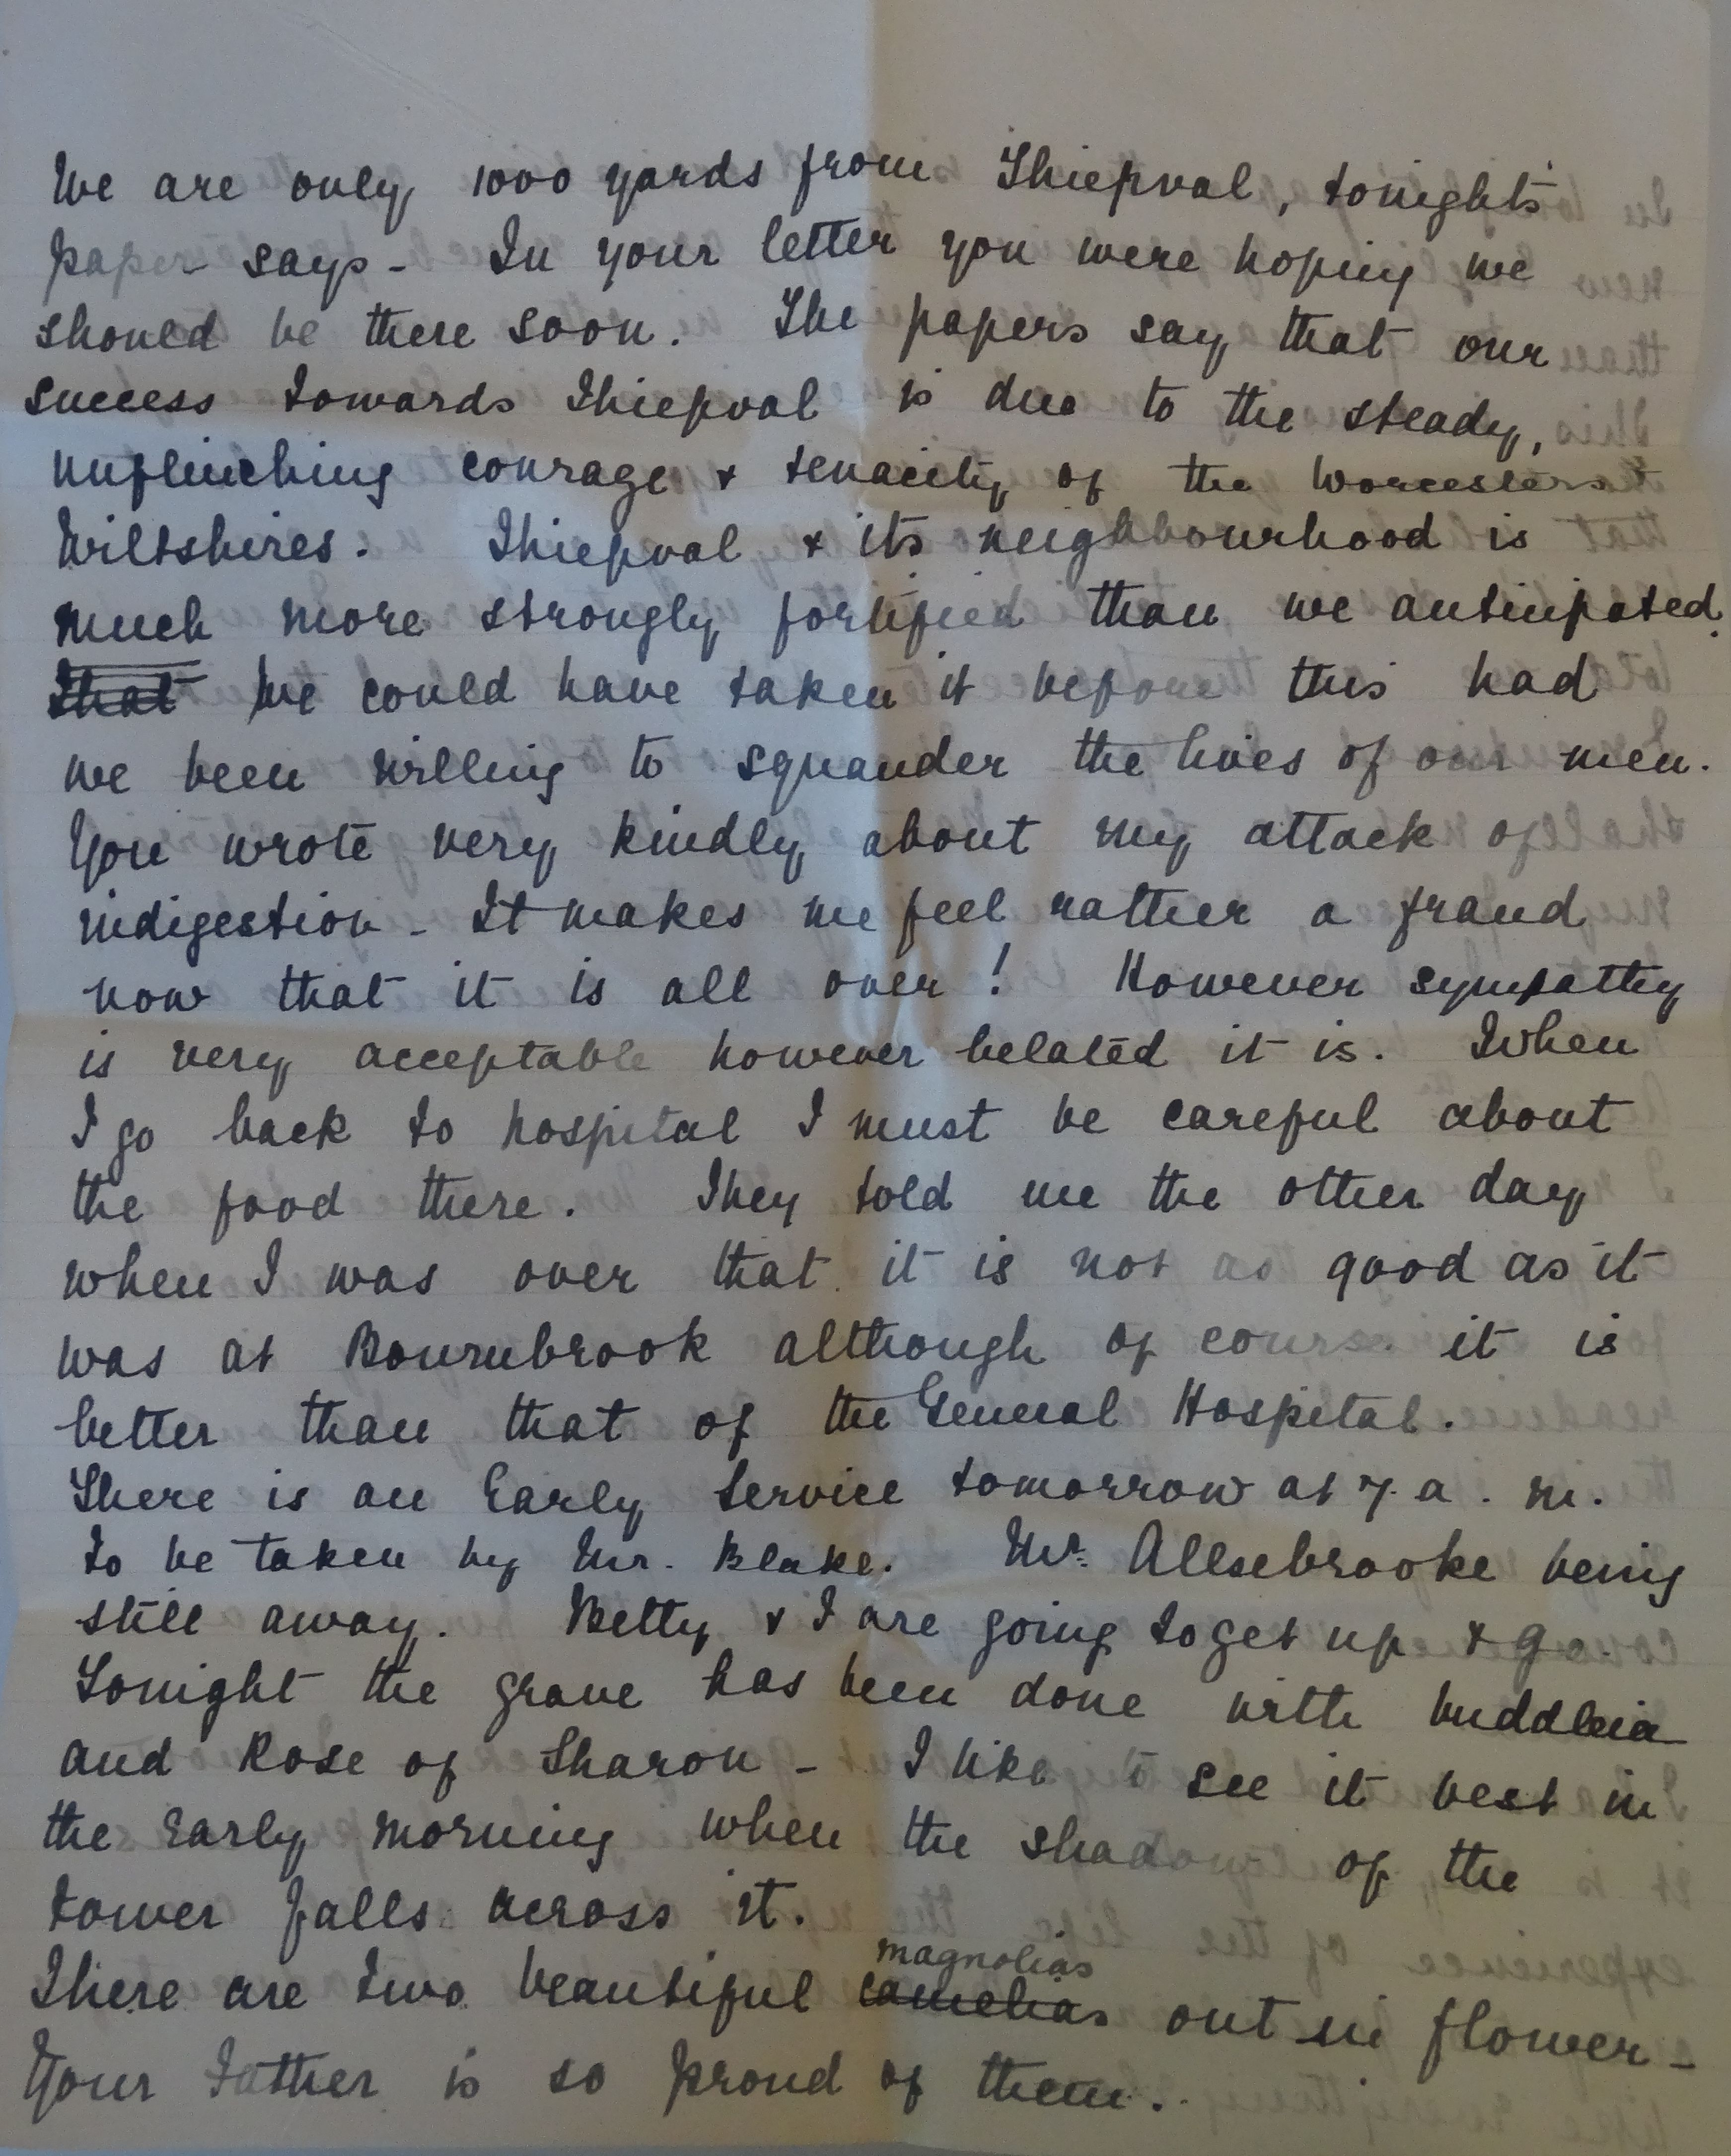 We are only 1000 yards from Thiepval, tonight's
paper says - In your letter you were hoping we
should be there soon. The papers say that our
success towards Thiepval is due to the steady,
unflinching courage & tenacity of the Worcesters &
Wiltshires. Thiepval & its neighbourhood is
much more strongly fortified than we anticipated.
That We could have taken it before this had
we been willing to squander the lives of our men.
You wrote very kindly about my attack of
indigestion - It makes me feel rather a fraud
now that it is all over! However sympathy
is very acceptable however belated it is. When
I go back to hospital I must be careful about
the food there. They told me the other day
when I was over that it is not as good as it
was at Bournbrook although of course it is
better than that of the General Hospital.
There is an Early Service tomorrow at 7. a. m.
to be taken by Mr. Blake. Mr. Allsebrooke being
still away. Betty & I are going to get up & go.
Tonight the grave has been done with buddleia
and Rose of Sharon - I like to see it best in
the early morning when the shadow of the
tower falls across it.
magnolias
There are two beautiful camelias out in flower -
Your Father is so proud of them.